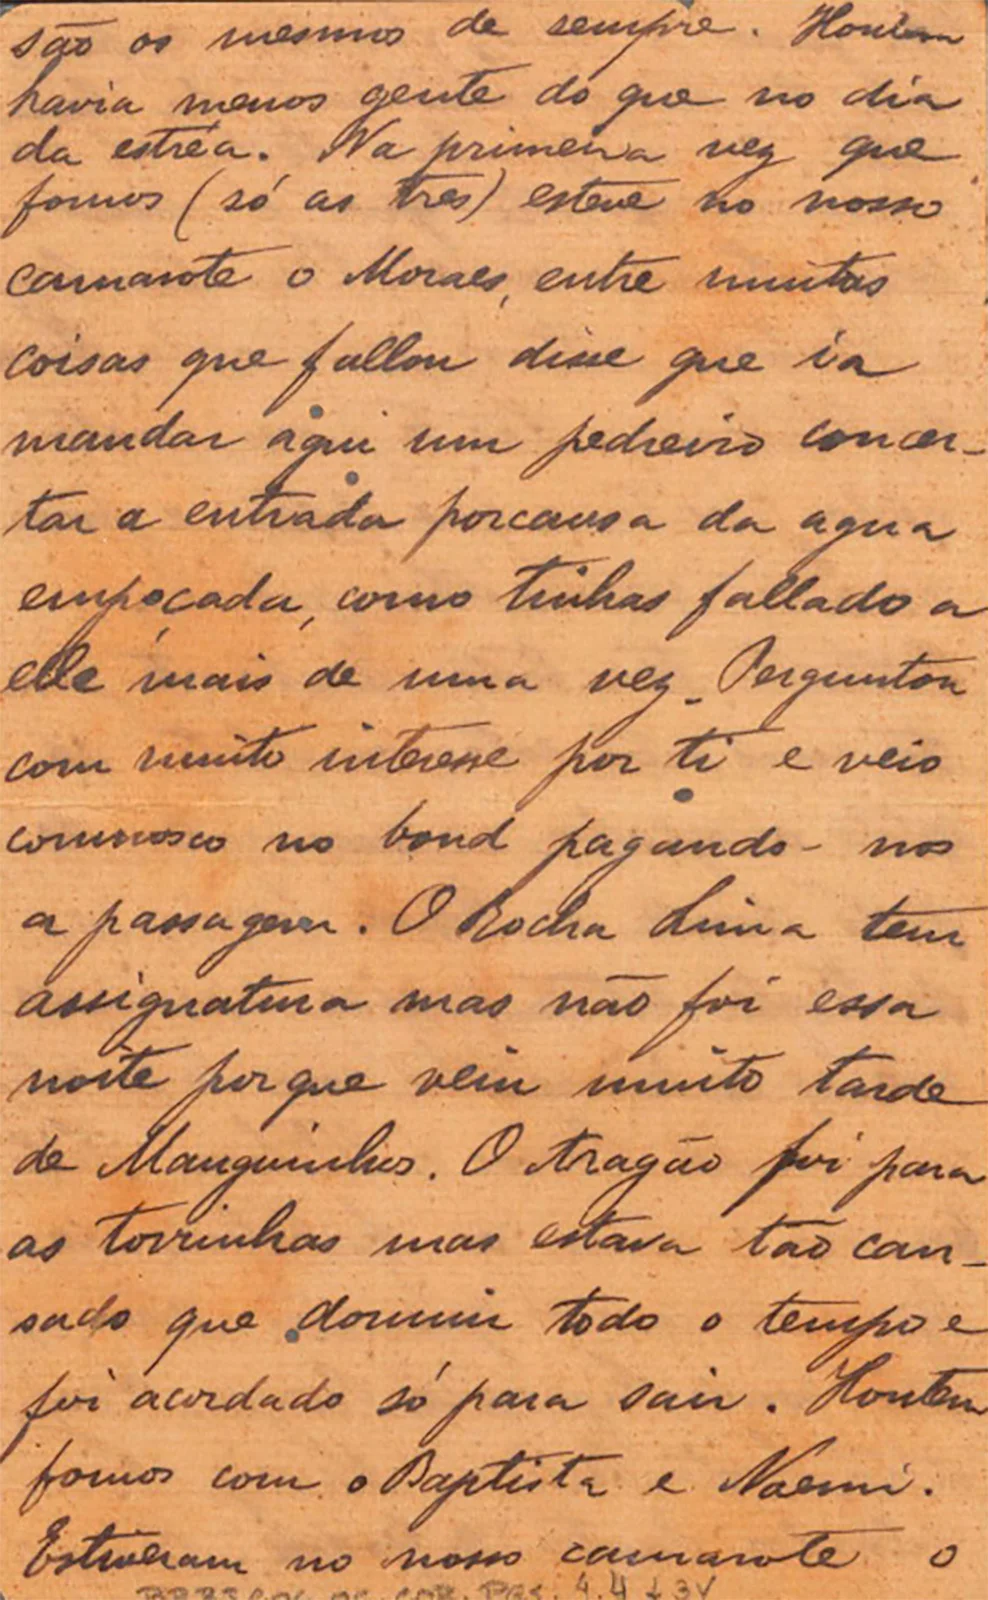 são os mesmos de sempre. Hontem
havia menos gente do que no dia
da estréa. Na primeira vez que
fomos (só as tres) esteve no nosso
camarote o Moraes, entre muitas
coisas que fallou disse que ia
mandar aqui um pedreiro concer-
tar a entrada porcausa da agua
empoçada, como tinhas fallado a
elle mais de uma vez. Perguntou
com muito interesse por ti e veio
comnosco no bond pagando-nos
a passagem. O Rocha Lima tem
assignatura mas não foi essa
noite porque veiu muito tarde
de Manguinhos. O Aragão foi para
as torrinhas mas estava tão can-
sado que dormiu todo o tempo e
foi acordado só para sair. Hontem
fomos com o Baptista e Noemi.
Estiveram no nosso camarote o